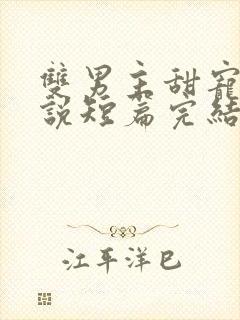 雙男主甜寵
說短篇完結
江平洋巳